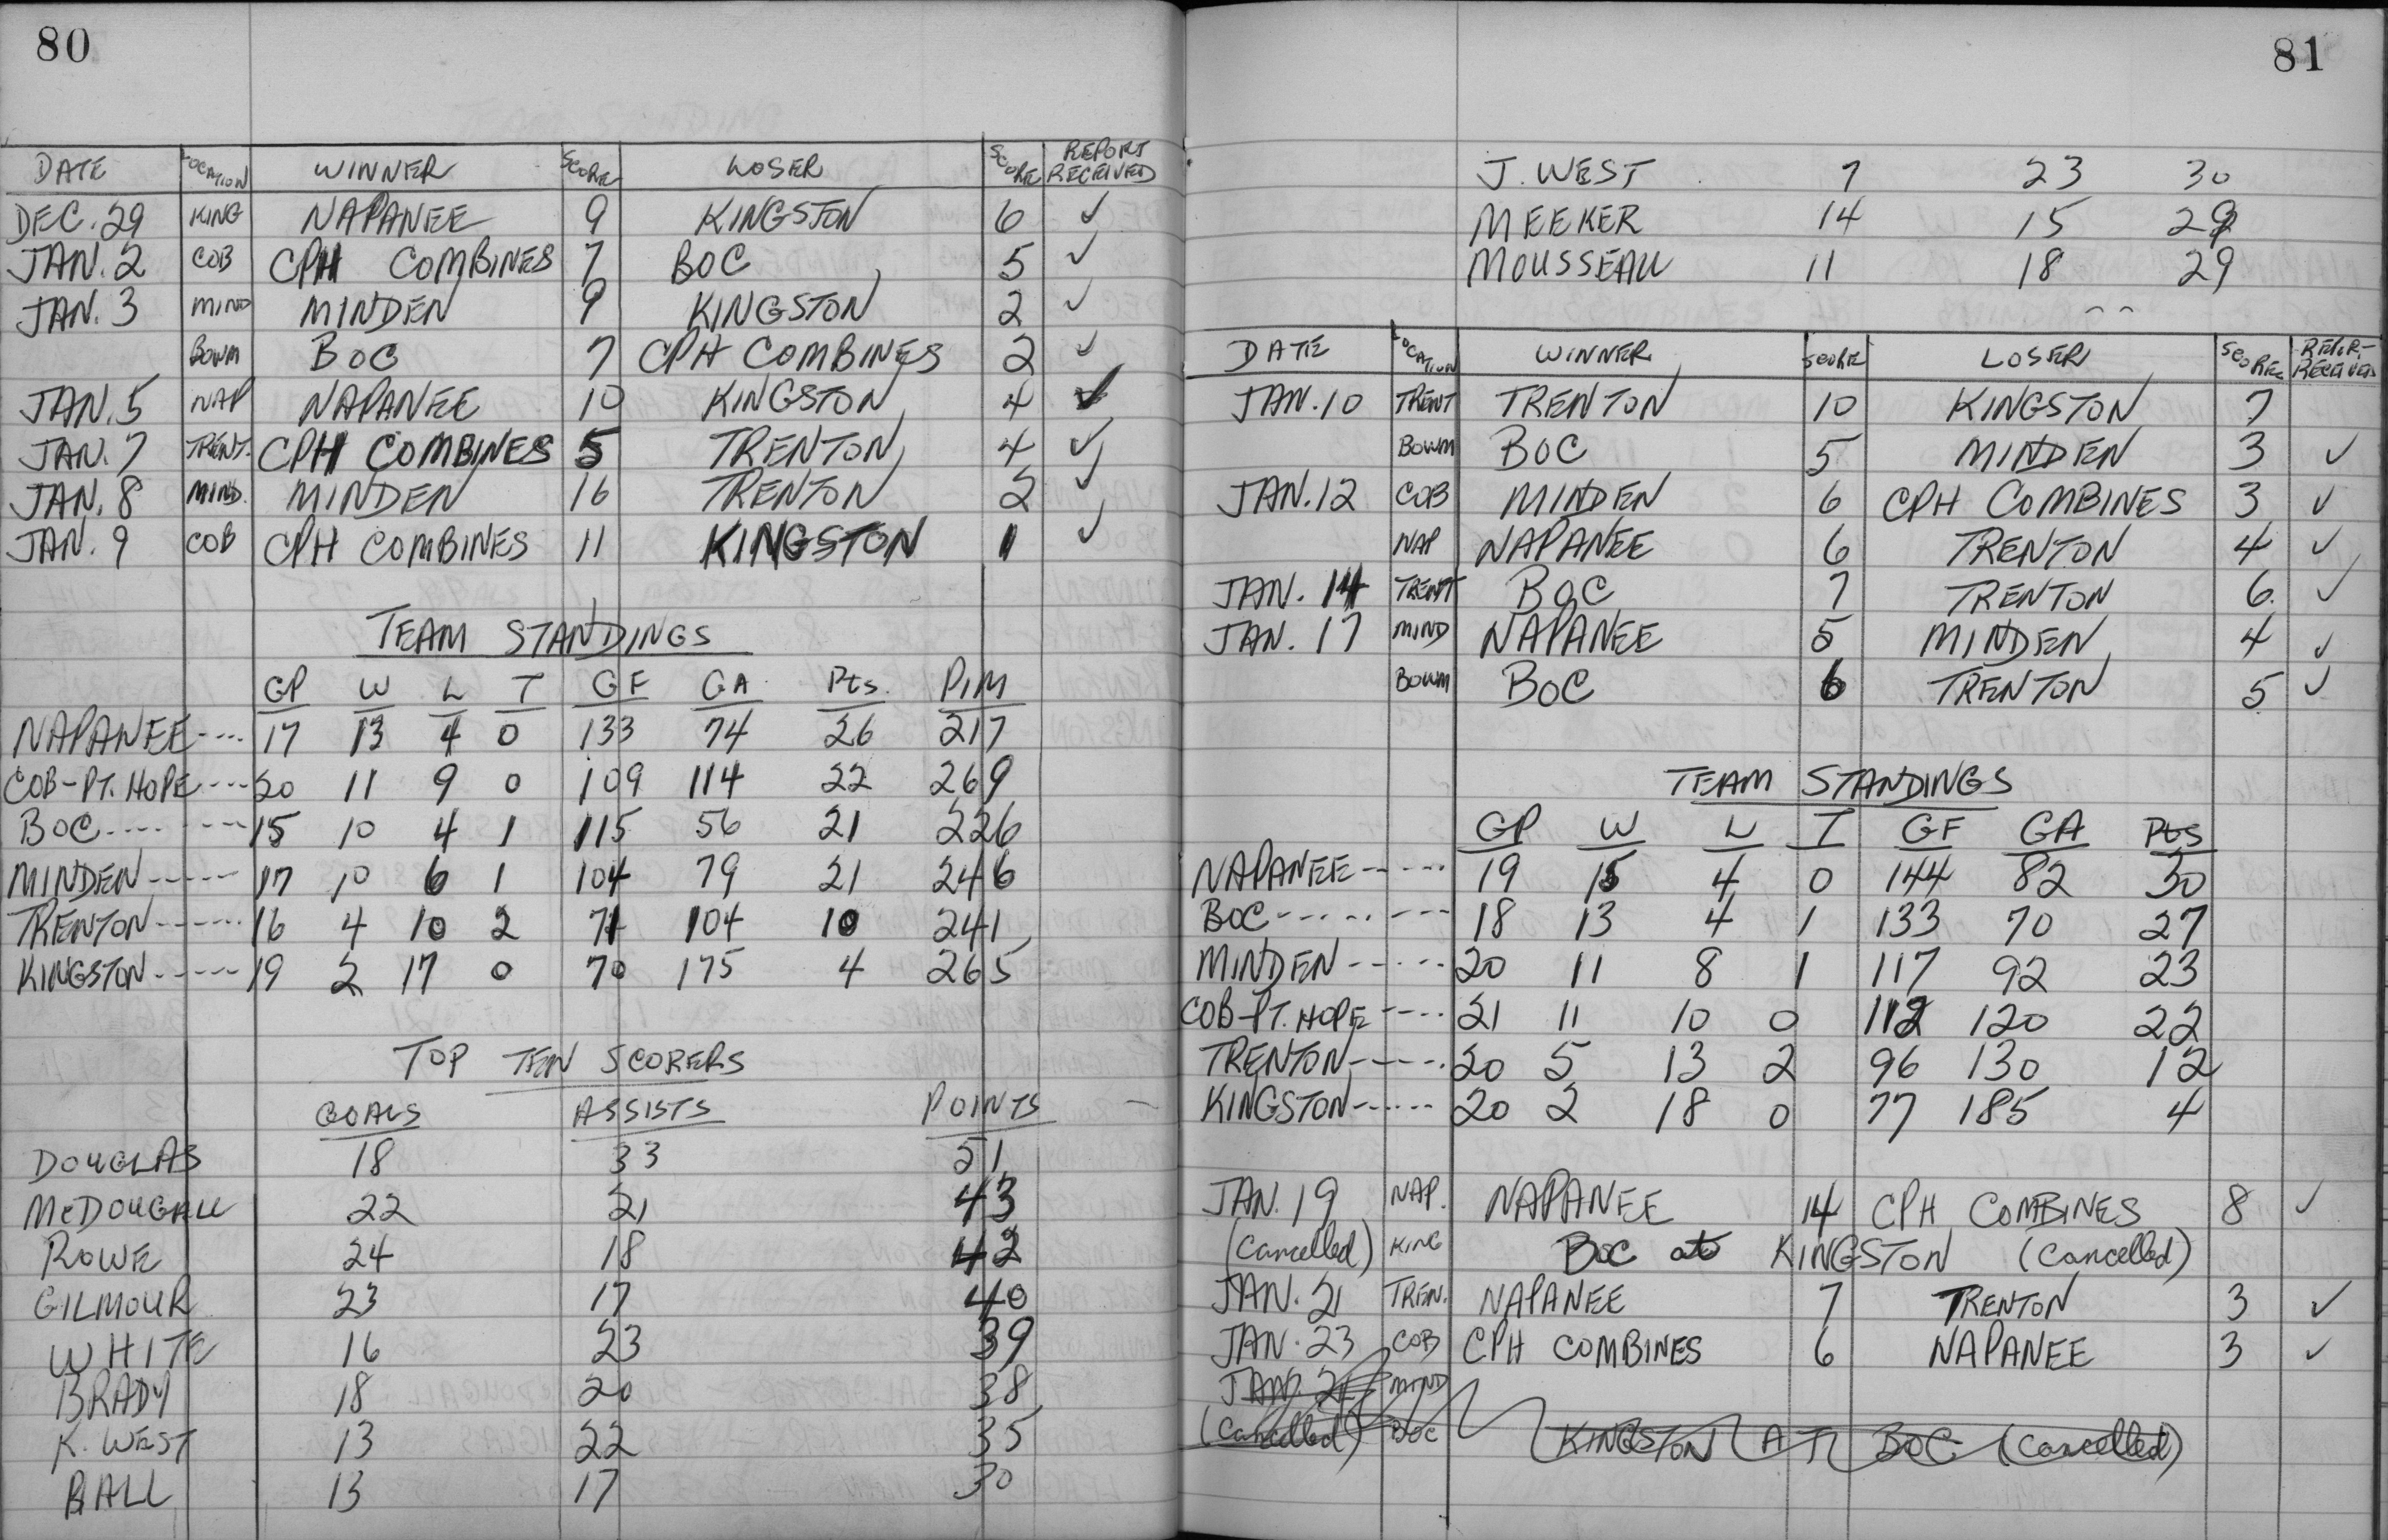 80
DATE LOCATION WINNER SCORE LOSER SCORE REPORT RECEIVED
DEC. 29 KING NAPANEE 9 KINGSTON 6 ✓
JAN. 2 COB CPH COMBINES 7 BOC 5 ✓
JAN. 3 MIND MINDEN 9 KINGSTON 2 ✓
BOWM BOC 7 CPH COMBINES 2 ✓
JAN. 5 NAP NAPANEE 10 KINGSTON 4 ✓
JAN. 7 TRENT. CPH COMBINES 5 TRENTON 4 ✓
JAN. 8 MIND. MINDEN 16 TRENTON 2 ✓
JAN. 9 COB CPH COMBINES 11 KINGSTON 1 ✓
TEAM STANDINGS
GP W L T GF GA Pts. PIM
NAPANEE---- 17 13 4 0 133 74 26 217
COB-PT. HOPE---- 20 11 9 0 109 114 22 269
BOC------- 15 10 4 1 115 56 21 226
MINDEN----- 17 10 6 1 104 79 21 246
TRENTON------ 16 4 10 2 71 104 10 241
KINGSTON----- 19 2 17 0 70 175 4 265
TOP TEN SCORERS
GOALS ASSISTS POINTS
DOUGLAS 18 33 51
McDOUGALL 22 21 43
ROWE 24 18 42
GILMOUR 23 17 40
WHITE 16 23 39
BRADY 18 20 38
K. WEST 13 22 35
BALL 13 17 30
81
J. WEST 7 23 30
MEEKER 14 15 29
MOUSSEAU 11 18 29
DATE LOCATION WINNER SCORE LOSER SCORE REPORT RECEIVED
JAN. 10 TRENT TRENTON 10 KINGSTON 7
BOWM BOC 5 MINDEN 3 ✓
JAN. 12 COB MINDEN 6 CPH COMBINES 3 ✓
NAP NAPANEE 6 TRENTON 4 ✓
JAN. 14 TRENT BOC 7 TRENTON 6. ✓
JAN. 17 MIND NAPANEE 5 MINDEN 4 ✓
BOWM BOC 6 TRENTON 5 ✓
TEAM STANDINGS
GP W L T GF GA Pts
NAPANEE----- 19 15 4 0 144 82 30
BOC-------- 18 13 4 1 133 70 27
MINDEN----- 20 11 8 1 117 92 23
COB-PT. HOPE---- 21 11 10 0 112 120 22
TRENTON----- 20 5 13 2 96 130 12
KINGSTON------ 20 2 18 0 77 185 4
JAN. 19 NAP. NAPANEE 14 CPH COMBINES 8 ✓
(Cancelled) KING BOC at KINGSTON (Cancelled)
JAN. 21 TREN. NAPANEE 7 TRENTON 3 ✓
JAN. 23 COB CPH COMBINES 6 NAPANEE 3 ✓
JAN. MIND
(Cancelled) BOC KINGSTON AT BOC (Cancelled)